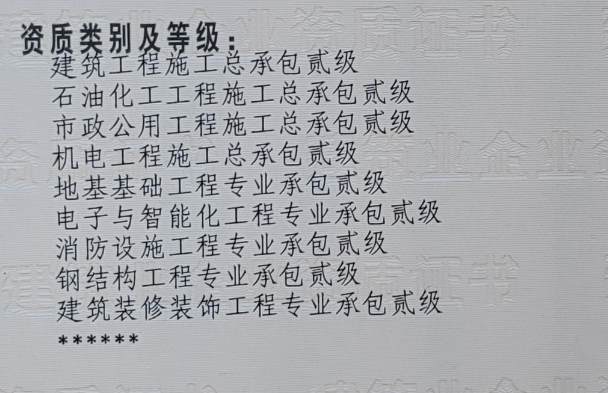 资质类别及等级：
建筑工程施工总承包贰级
石油化工工程施工总承包贰级
市政公用工程施工总承包贰级
机电工程施工总承包贰级
地基基础工程专业承包贰级
电子与智能化工程专业承包贰级
消防设施工程专业承包贰级
钢结构工程专业承包贰级
建筑装修装饰工程专业承包贰级
******